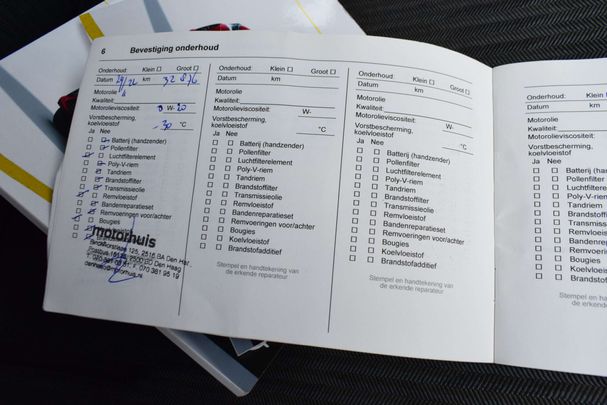 6 Bevestiging onderhoud
Onderhoud: Klein Groot
Datum km 32 876
Motorolie
Kwaliteit:
Motorolieviscositeit: 0 W- 20
Vorstbescherming,
koelvloeistof -30 °C
Ja Nee
Batterij (handzender)
Pollenfilter
Luchtfilterelement
Poly-V-riem
Tandriem
Brandstoffilter
Transmissieolie
Remvloeistof
Bandenreparatieset
Remvoeringen voor/achter
Bougies
motorhuis
125, 2516 BA Den Haag
2500 BD Den Haag
F. 070 381 95 19
Onderhoud: Klein Groot
Datum km
Motorolie
Kwaliteit:
Motorolieviscositeit: W-
Vorstbescherming,
koelvloeistof °C
Ja Nee
Batterij (handzender)
Pollenfilter
Luchtfilterelement
Poly-V-riem
Tandriem
Brandstoffilter
Transmissieolie
Remvloeistof
Bandenreparatieset
Remvoeringen voor/achter
Bougies
Koelvloeistof
Brandstofadditief
Stempel en handtekening van
de erkende reparateur
Onderhoud: Klein Groot
Datum km
Motorolie
Kwaliteit:
Motorolieviscositeit: W-
Vorstbescherming,
koelvloeistof °C
Ja Nee
Batterij (handzender)
Pollenfilter
Luchtfilterelement
Poly-V-riem
Tandriem
Brandstoffilter
Transmissieolie
Remvloeistof
Bandenreparatieset
Remvoeringen voor/achter
Bougies
Koelvloeistof
Brandstofadditief
Stempel en handtekening van
de erkende reparateur
Onderhoud: Klein
Datum km
Motorolie
Kwaliteit:
Motorolieviscositeit:
Vorstbescherming,
koelvloeistof
Ja Nee
Batterij (ha
Pollenfilter
Luchtfilterele
Poly-V-riem
Tandriem
Brandstoffilt
Transmissie
Remvloeisto
Bandenrepa
Remvoering
Bougies
Koelvloeist
Brandstofa
Stempel en ha
de erkende re